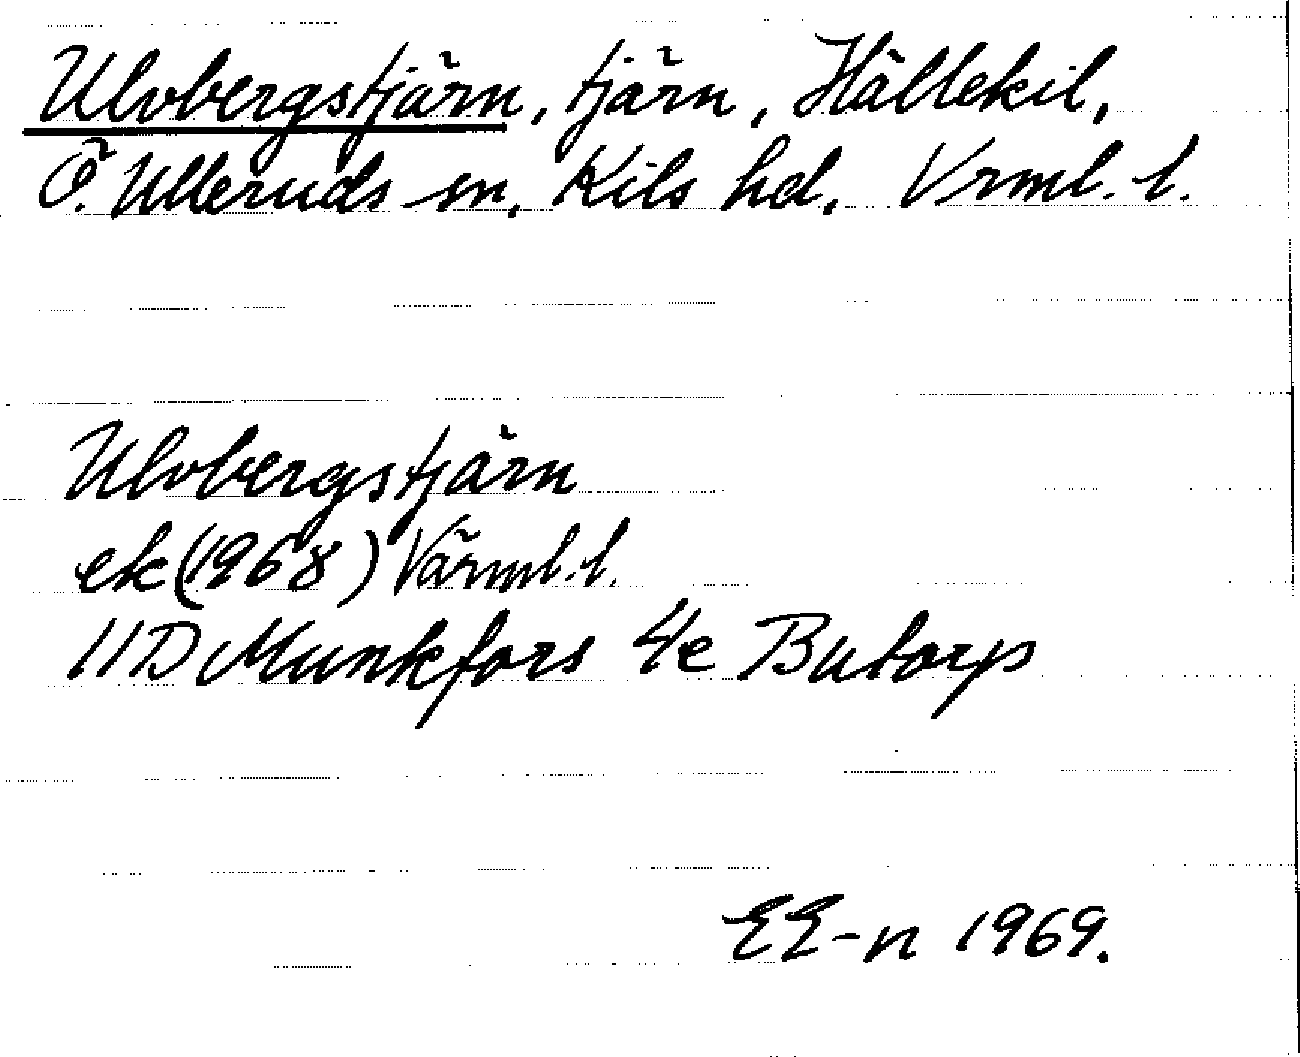 Ulvbergstjärn, tjärn, Hällekil,
Ö. Ulleruds sn, Kils hd, Vrml. l.
Ulvbergstjärn
ek (1968) Värml. l.
11D Munkfors 4e Butorp
EE-n 1969.